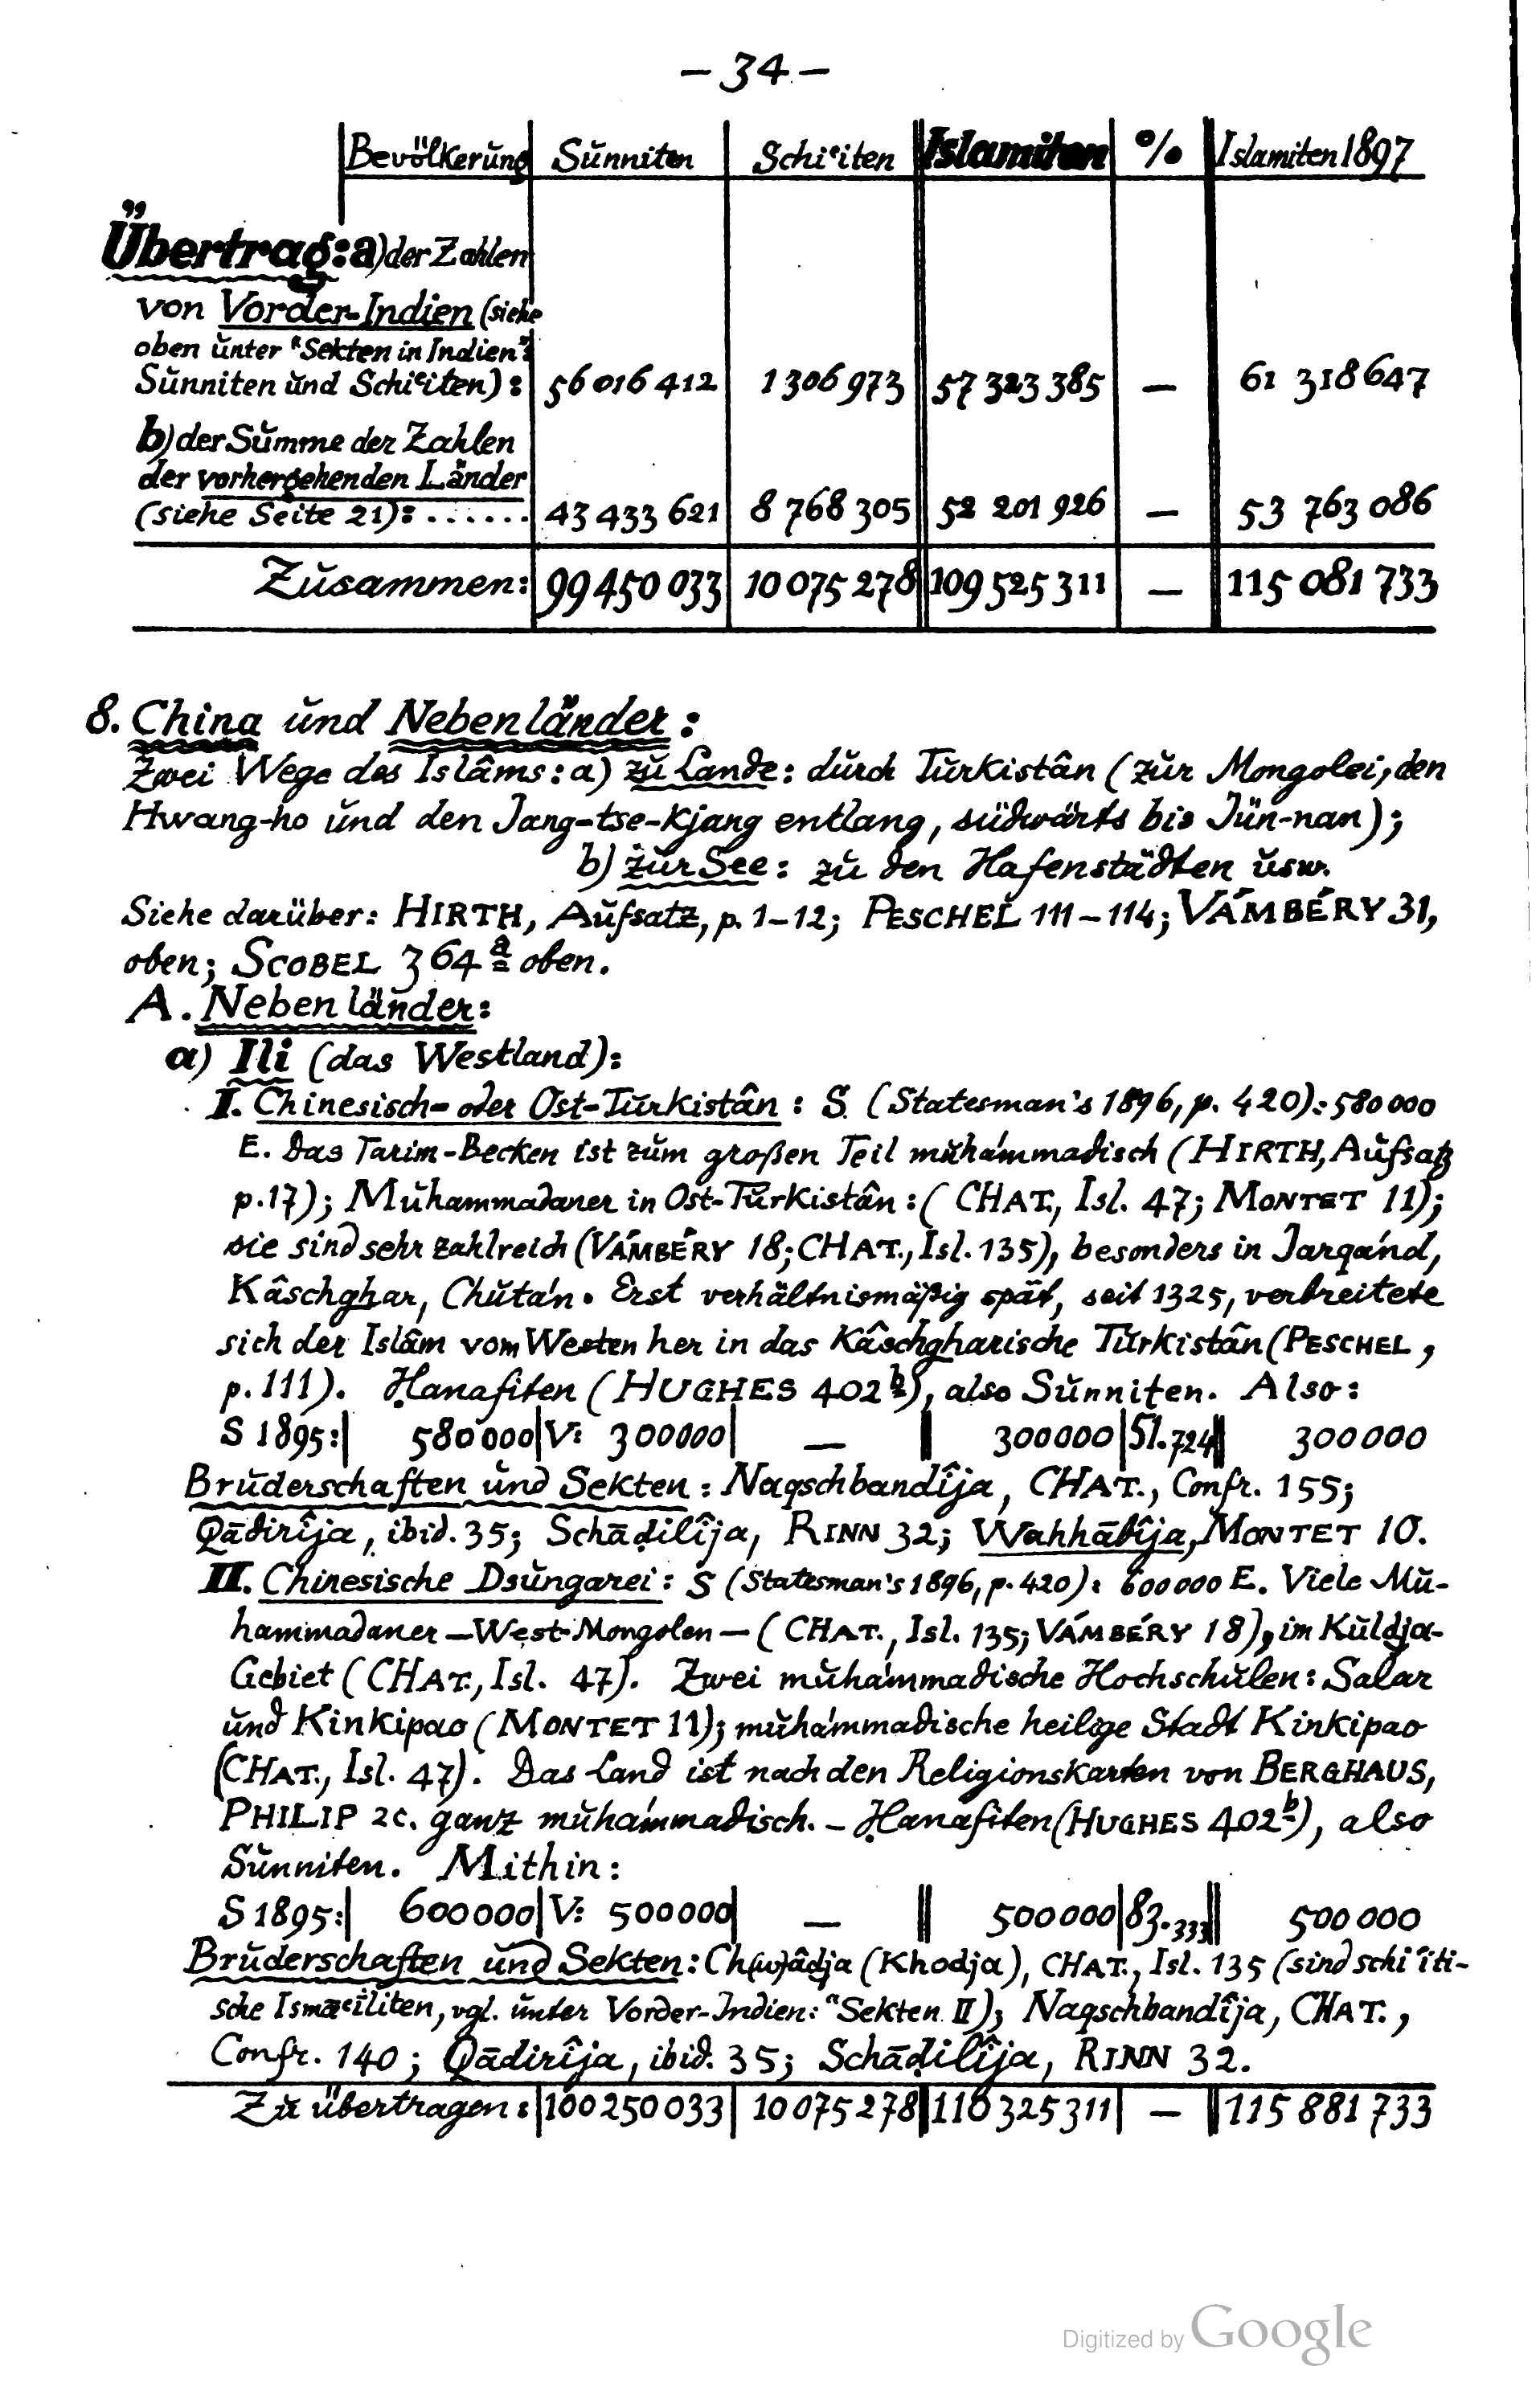 – 34 –
Bevölkerung Sunniten Schiʿiten Islamiten % Islamiten 1897
Übertrag: a) der Zahlen
von Vorder-Indien (siehe
oben unter "Sekten in Indien":
Sunniten und Schiʿiten): 56 016 412 1 306 973 57 323 385 — 61 318 647
b) der Summe der Zahlen
der vorhergehenden Länder
(siehe Seite 21): ...... 43 433 621 8 768 305 52 201 926 — 53 763 086
Zusammen: 99 450 033 10 075 278 109 525 311 — 115 081 733
8. China und Nebenländer:
Zwei Wege des Islâms: a) zu Lande: durch Turkistân (zur Mongolei, den
Hwang-ho und den Jang-tse-Kjang entlang, südwärts bis Jün-nan);
b) zur See: zu den Hafenstädten usw.
Siehe darüber: HIRTH, Aufsatz, p. 1–12; PESCHEL 111–114; VÁMBÉRY 31,
oben; SCOBEL 364a oben.
A. Nebenländer:
a) Ili (das Westland):
I. Chinesisch- oder Ost-Turkistân: S. (Statesman's 1896, p. 420): 580 000
E. Das Tarim-Becken ist zum großen Teil muhámmadisch (HIRTH, Aufsatz
p. 17); Muhammadaner in Ost-Turkistân: (CHAT., Isl. 47; MONTET 11);
sie sind sehr zahlreich (VÁMBÉRY 18; CHAT., Isl. 135), besonders in Jarqánd,
Kâschghar, Chután. Erst verhältnismäßig spät, seit 1325, verbreitete
sich der Islâm vom Westen her in das Kâschgharische Turkistân (PESCHEL,
p. 111). Ḥanafiten (HUGHES 402b), also Sunniten. Also:
S 1895: 580 000 V: 300 000 — 300 000 51.724 300 000
Bruderschaften und Sekten: Naqschbandîja, CHAT., Confr. 155;
Qādirîja, ibid. 35; Schāḍilîja, RINN 32; Wahhābîja, MONTET 10.
II. Chinesische Dsungarei: S (Statesman's 1896, p. 420): 600 000 E. Viele Mu-
hammadaner – West-Mongolen – (CHAT., Isl. 135; VÁMBÉRY 18), im Kuldja-
Gebiet (CHAT., Isl. 47). Zwei muhámmadische Hochschulen: Salar
und Kinkipao (MONTET 11); muhámmadische heilige Stadt Kinkipao
(CHAT., Isl. 47). Das Land ist nach den Religionskarten von BERGHAUS,
PHILIP 2c. ganz muhámmadisch. – Ḥanafiten (HUGHES 402b), also
Sunniten. Mithin:
S 1895: 600 000 V: 500 000 — 500 000 83.333 500 000
Bruderschaften und Sekten: Ch(w)âdja (Khodja), CHAT., Isl. 135 (sind schiʿiti-
sche Ismāʿîliten, vgl. unter Vorder-Indien: "Sekten II); Naqschbandîja, CHAT.,
Confr. 140; Qādirîja, ibid. 35; Schāḍilîja, RINN 32.
Zu übertragen: 100 250 033 10 075 278 110 325 311 — 115 881 733
Digitized by Google